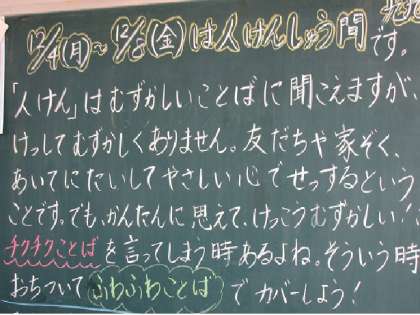 12/4(月)〜12/8(金)は人けんしゅう間です。
「人けん」はむずかしいことばに聞こえますが、
けっしてむずかしくありません。友だちや家ぞく、
あいてにたいしてやさしい心でせっするという
ことです。でも、かんたんに思えて、けっこうむずかしい!
チクチクことばを言ってしまう時あるよね。そういう時
おちついてふわふわことばでカバーしよう!